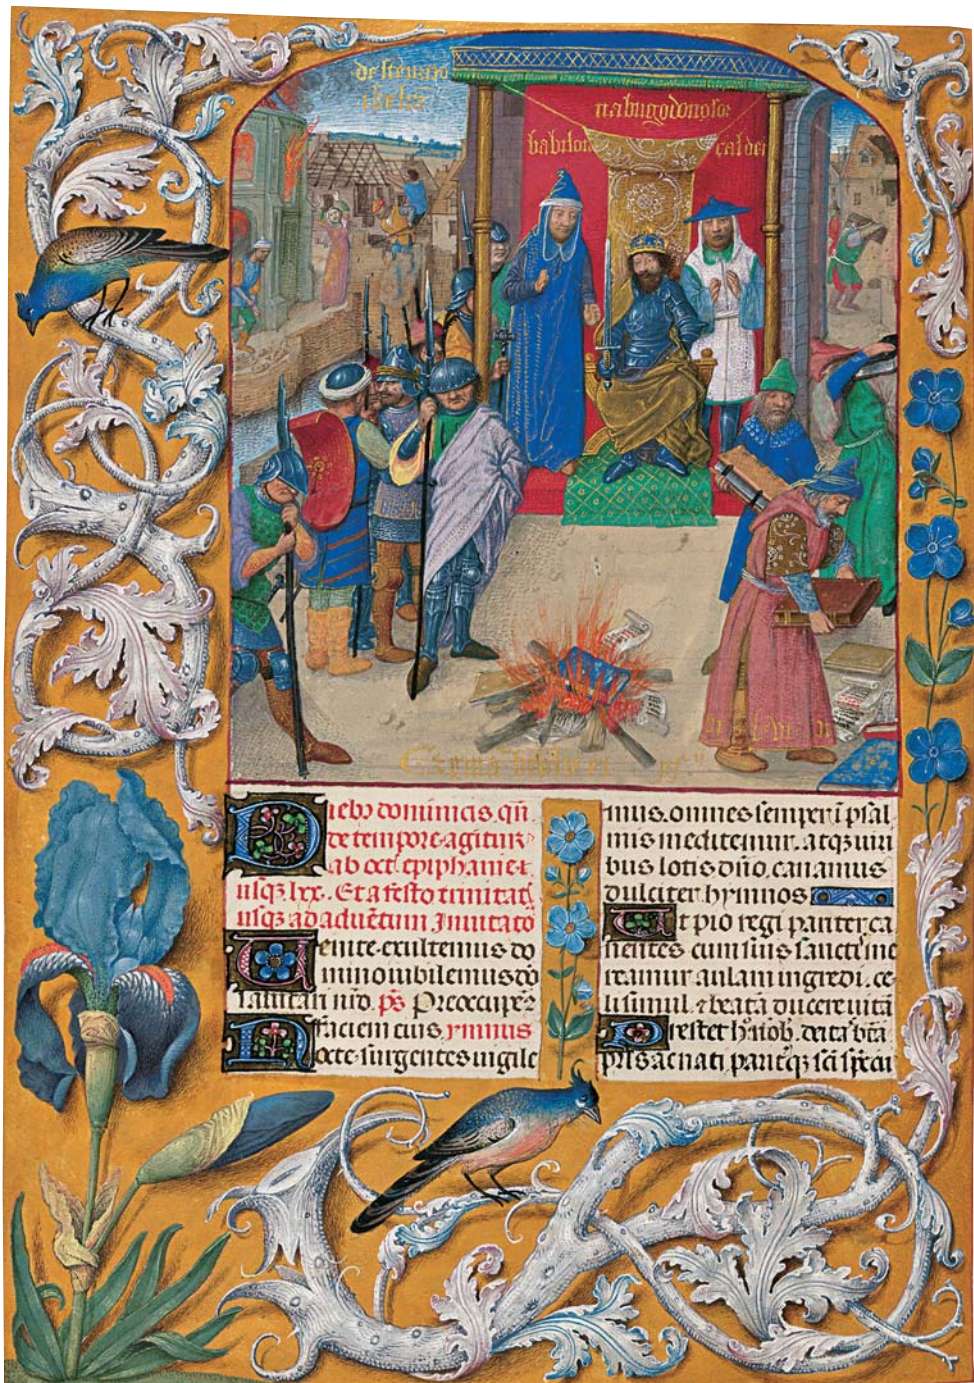 nabugodonosor
babilon
caldei
Diebus dominicis qn̄
de tempore agitur
ab oct. epiphanie
usq; lxx. Et a festo trinitatꝭ
usq; ad aduētum Inuitatoꝝ
Uenite exultemus do
mino iubilemus dō
salutari nrō. ps̄ Preoccupem9
faciem eius ymnus
Nocte surgentes uigile
mus omnes semper ī psal
mis meditemur. atq; uiri
bus totis dn̄o canamus
dulciter hymnos
Ut pio regi pariter ca
nentes cum suis sanctꝭ me
reamur aulam ingredi. ce
li simul ⁊ beatā ducere uitā
Prestet h' nob. deitas btā
prīs ac nati pariteq; scī spc̄ai